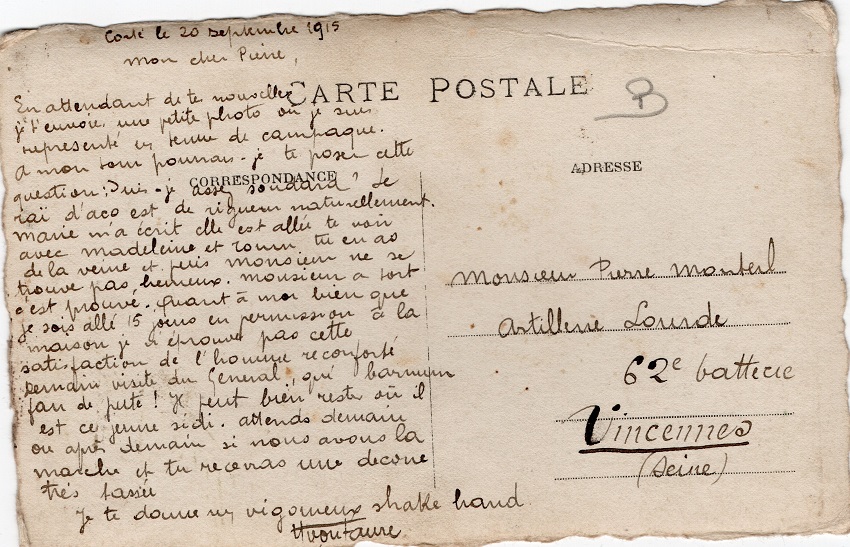 Corté le 20 septembre 1915
mon cher Pierre,
CARTE POSTALE
En attendant de tes nouvelles
je t'envoie une petite photo où je suis
représenté en tenue de campagne.
A mon tour pourrais-je te poser cette
question: Suis-je assez soudard? Le
CORRESPONDANCE
raï d'aco est de rigueur naturellement.
Marie m'a écrit elle est allée te voir
avec Madeleine et tu en as
de la veine et puis monsieur ne se
trouve pas heureux. Monsieur a tort
c'est prouvé. Quant à moi bien que
je sois allé 15 jours en permission à la
maison je n'éprouve pas cette
satisfaction de l'homme reconforté
Demain visite du Général, qué barnum
fan de pute! Il peut bien rester où il
est ce jeune sidi. attends demain
ou après demain si nous avons la
marche et tu recevras une
très tassée
Je te donne un vigoureux shake hand
ADRESSE
Monsieur Pierre Monteil
Artillerie Lourde
62e batterie
Vincennes
(Seine)